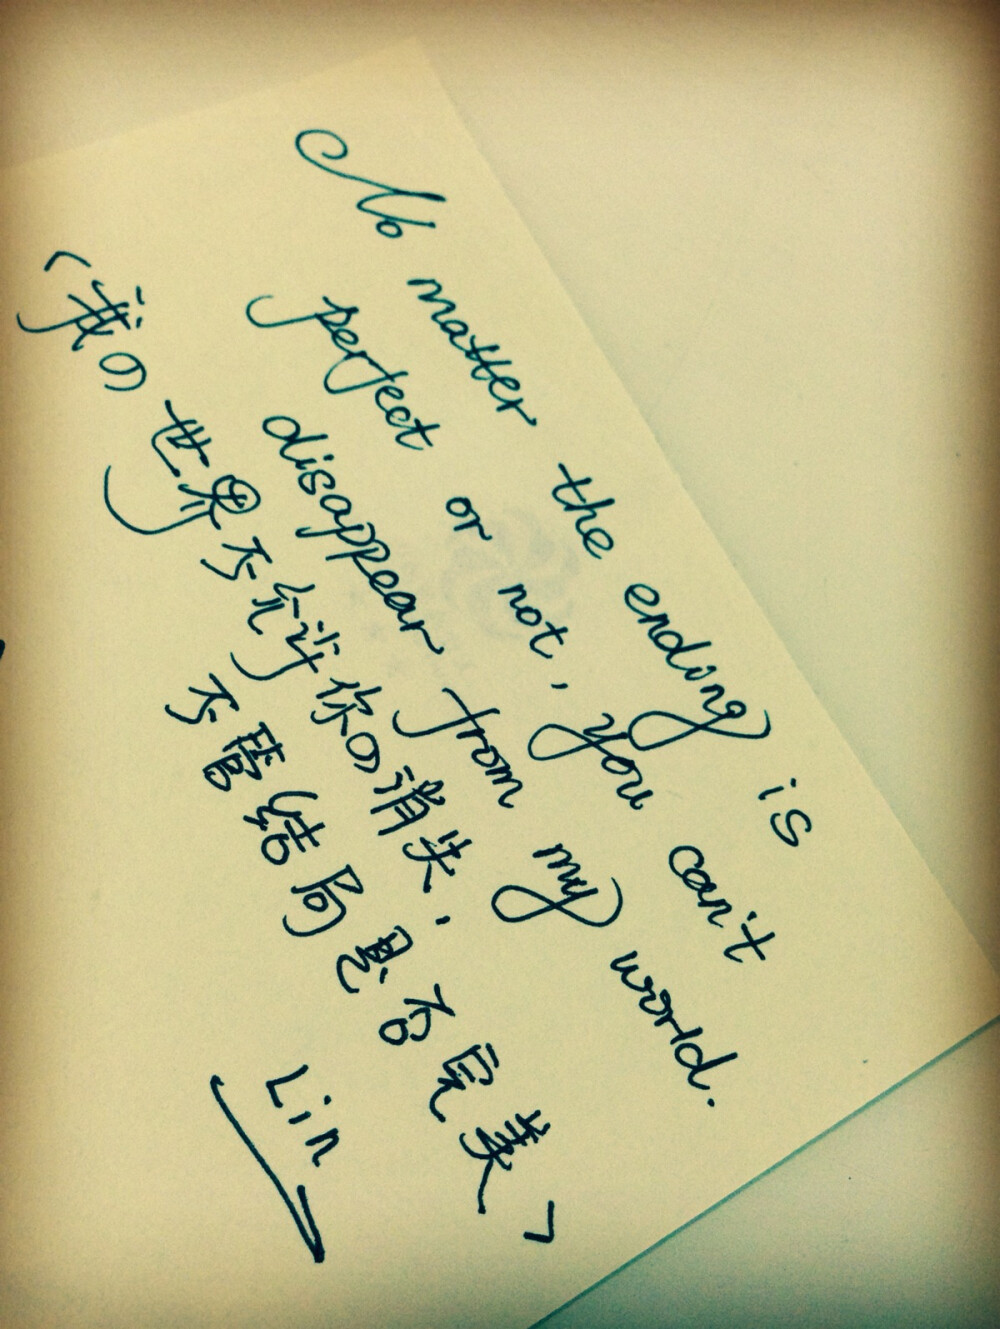 No matter the ending is
perfect or not, you can't
disappear from my world.
（我の世界不允许你の消失，
不管结局是否完美）
Lin